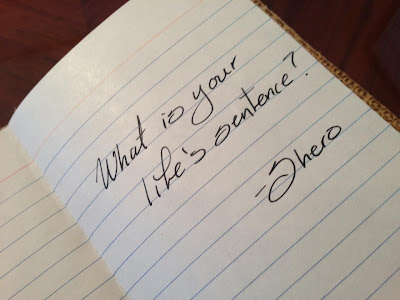 What is your
life's sentence?
-Jhero